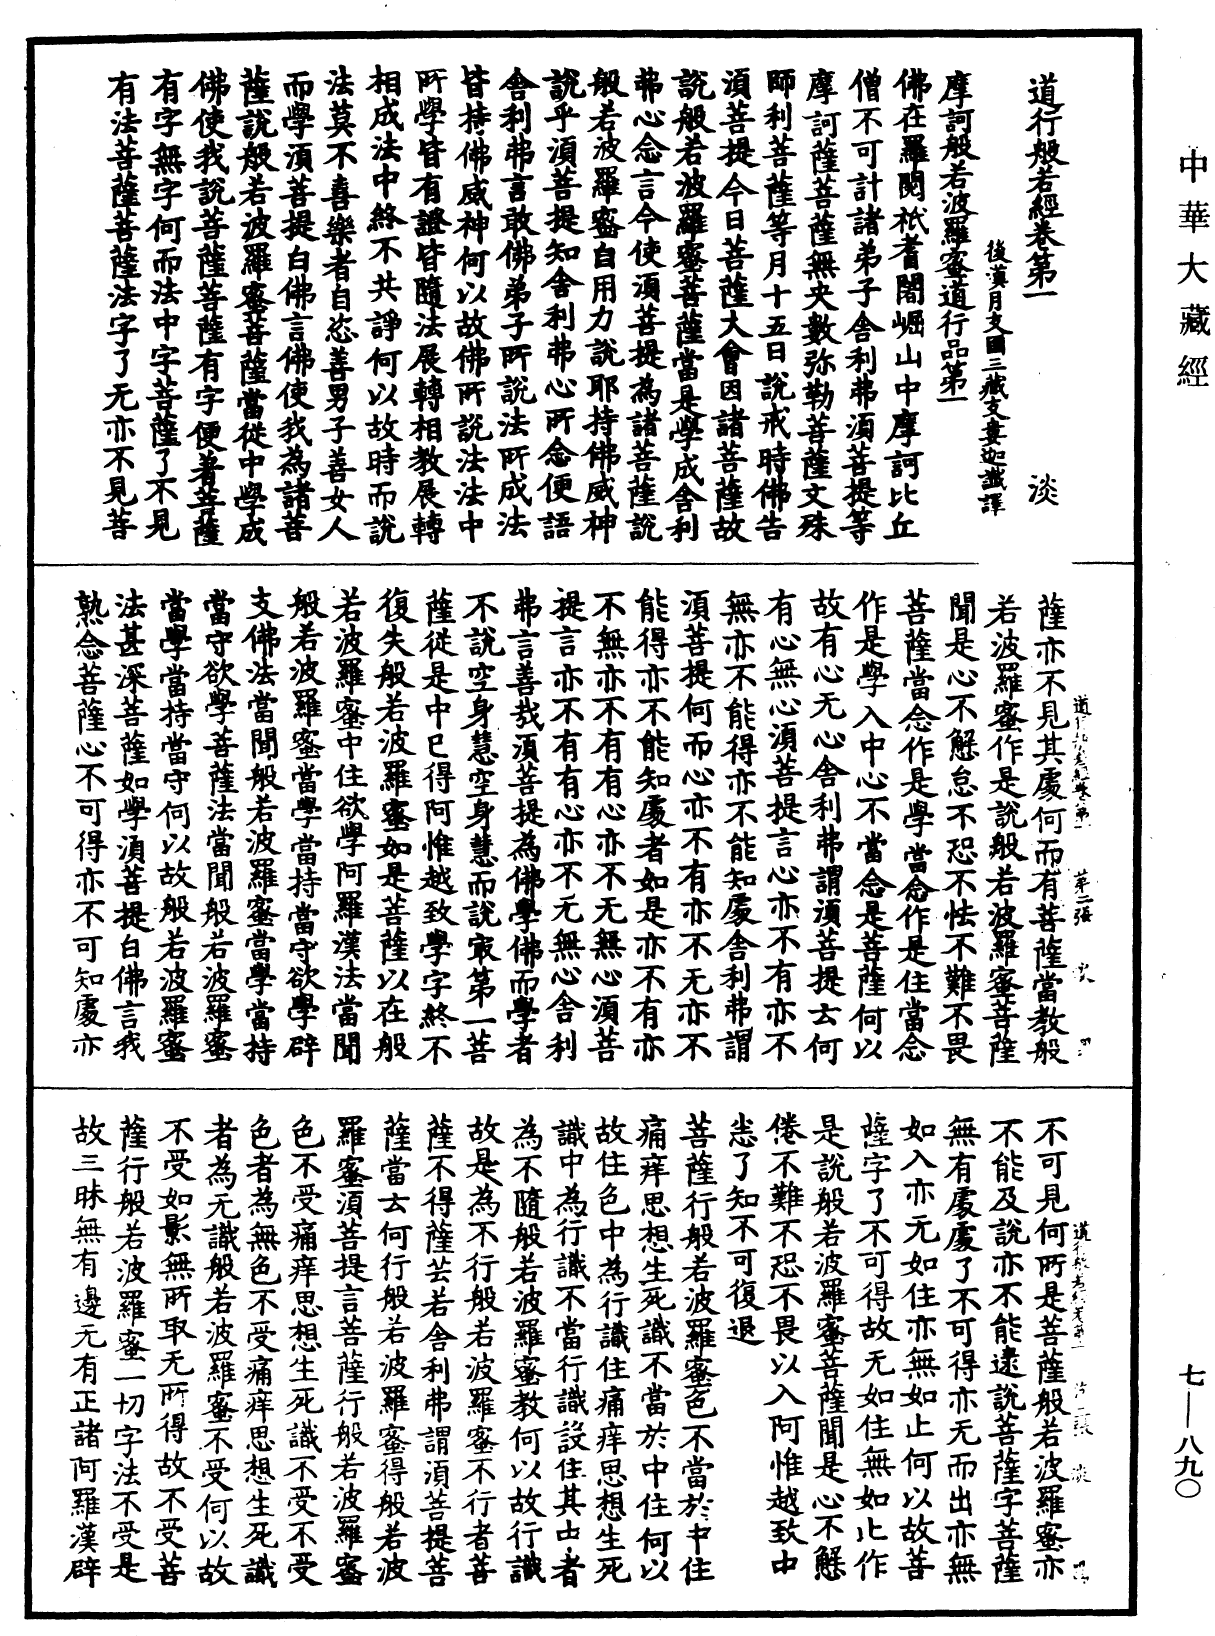 中華大藏經
道行般若經卷第一 淡
後漢月支國三藏支婁迦讖譯
摩訶般若波羅蜜道行品第一
佛在羅閱祇耆闍崛山中摩訶比丘
僧不可計諸弟子舍利弗須菩提等
摩訶薩菩薩無央數弥勒菩薩文殊
師利菩薩等月十五日說戒時佛告
須菩提今日菩薩大會因諸菩薩故
說般若波羅蜜菩薩當是學成舍利
弗心念言今使須菩提為諸菩薩說
般若波羅蜜自用力說耶持佛威神
說乎須菩提知舍利弗心所念便語
舍利弗言敢佛弟子所說法所成法
皆持佛威神何以故佛所說法法中
所學皆有證皆隨法展轉相教展轉
相成法中終不共諍何以故時而說
法莫不喜樂者自恣善男子善女人
而學須菩提白佛言佛使我為諸菩
薩說般若波羅蜜菩薩當從中學成
佛使我說菩薩菩薩有字便著菩薩
有字無字何而法中字菩薩了不見
有法菩薩菩薩法字了无亦不見菩
薩亦不見其處何而有菩薩當教般
若波羅蜜作是說般若波羅蜜菩薩
聞是心不懈怠不恐不怯不難不畏
菩薩當念作是學當念作是住當念
作是學入中心不當念是菩薩何以
故有心无心舍利弗謂須菩提云何
有心無心須菩提言心亦不有亦不
無亦不能得亦不能知處舍利弗謂
須菩提何而心亦不有亦不无亦不
能得亦不能知處者如是亦不有亦
不無亦不有有心亦不无無心須菩
提言亦不有有心亦不无無心舍利
弗言善哉須菩提為佛學佛而學者
不說空身慧空身慧而說冣第一菩
薩從是中已得阿惟越致學字終不
復失般若波羅蜜如是菩薩以在般
若波羅蜜中住欲學阿羅漢法當聞
般若波羅蜜當學當持當守欲學辟
支佛法當聞般若波羅蜜當學當持
當守欲學菩薩法當聞般若波羅蜜
當學當持當守何以故般若波羅蜜
法甚深菩薩如學須菩提白佛言我
熟念菩薩心不可得亦不可知處亦
道行般若經卷第一 第二張 淡
不可見何所是菩薩般若波羅蜜亦
不能及說亦不能逮說菩薩字菩薩
無有處處了不可得亦无而出亦無
如入亦无如住亦無如止何以故菩
薩字了不可得故无如住無如止作
是說般若波羅蜜菩薩聞是心不懈
倦不難不恐不畏以入阿惟越致中
悉了知不可復退
菩薩行般若波羅蜜色不當於中住
痛痒思想生死識不當於中住何以
故住色中為行識住痛痒思想生死
識中為行識不當行識設住其中者
為不隨般若波羅蜜教何以故行識
故是為不行般若波羅蜜不行者菩
薩不得薩芸若舍利弗謂須菩提菩
薩當云何行般若波羅蜜得般若波
羅蜜須菩提言菩薩行般若波羅蜜
色不受痛痒思想生死識不受不受
色者為無色不受痛痒思想生死識
者為无識般若波羅蜜不受何以故
不受如影無所取无所得故不受菩
薩行般若波羅蜜一切字法不受是
故三昧無有邊无有正諸阿羅漢辟
七—八九〇